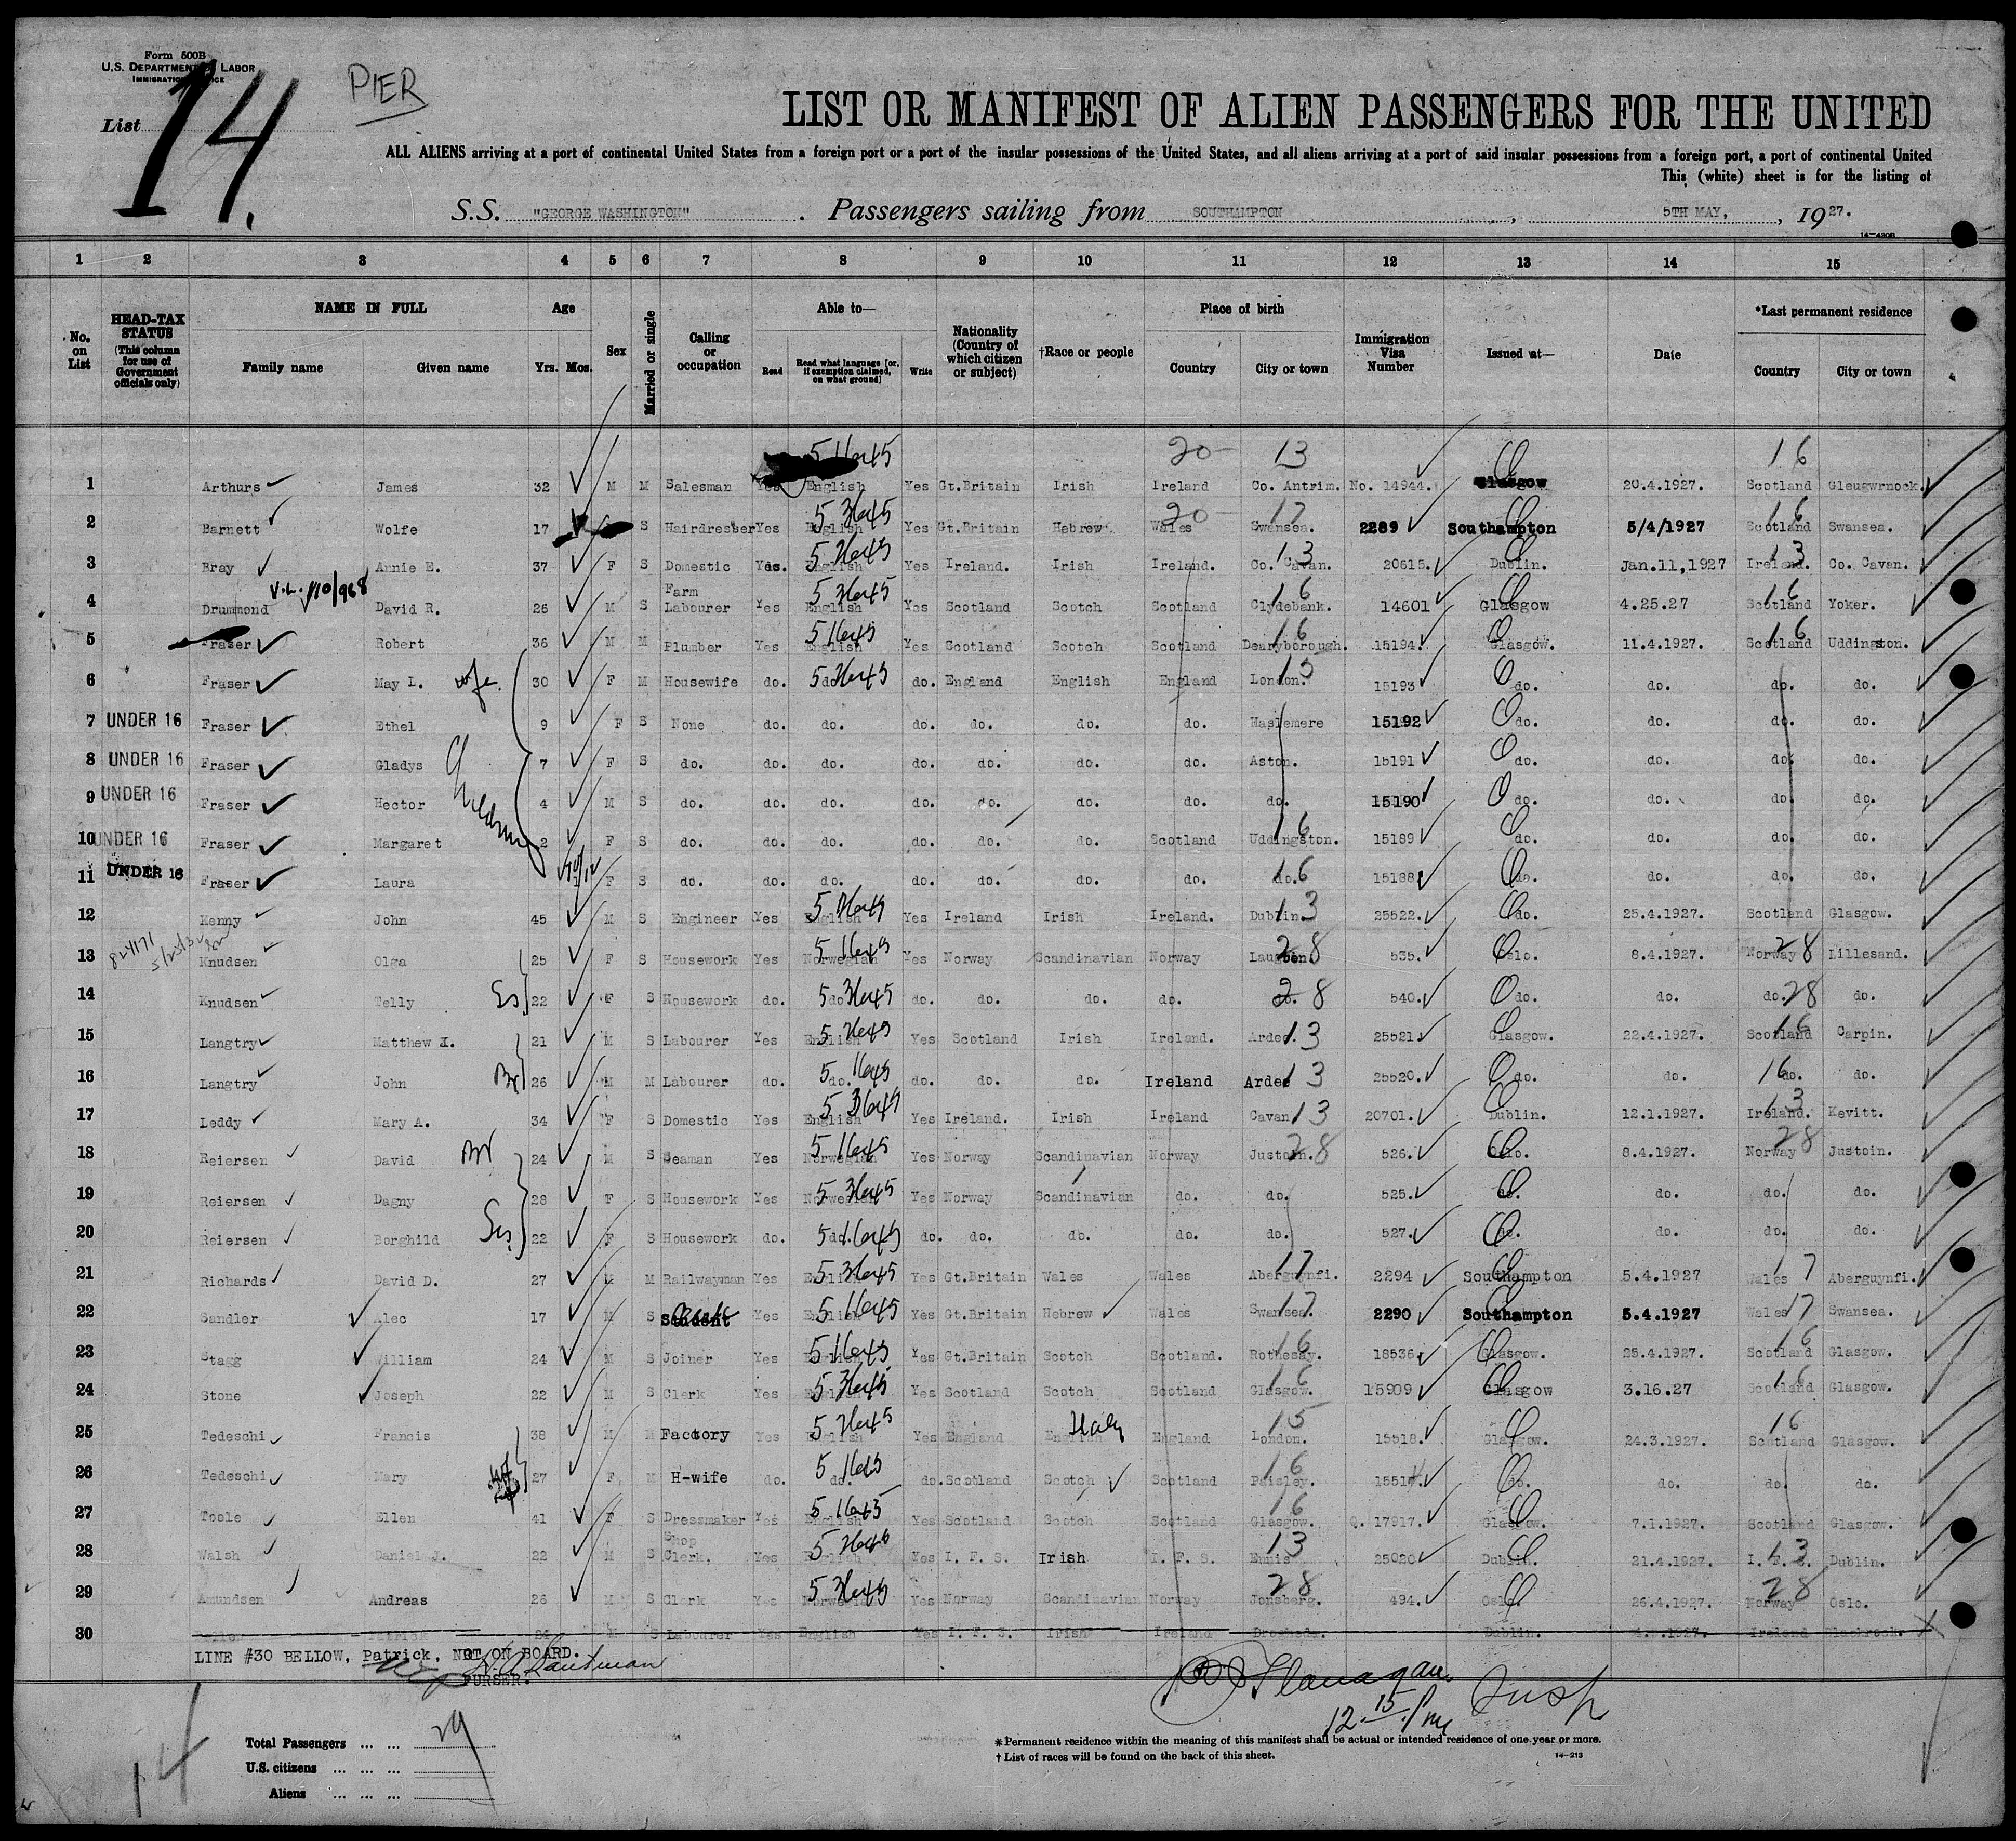 Form 500B
U.S. DEPARTMENT OF LABOR
IMMIGRATION SERVICE
PIER
List 14.
LIST OR MANIFEST OF ALIEN PASSENGERS FOR THE UNITED
ALL ALIENS arriving at a port of continental United States from a foreign port or a port of the insular possessions of the United States, and all aliens arriving at a port of said insular possessions from a foreign port, a port of continental United
This (white) sheet is for the listing of
S.S. "GEORGE WASHINGTON". Passengers sailing from SOUTHAMPTON, 5TH MAY, 1927.
14-430B
1 2 3 4 5 6 7 8 9 10 11 12 13 14 15
No. on List HEAD-TAX STATUS (This column for use of Government officials only) NAME IN FULL Family name Given name Age Yrs. Mos. Sex Married or single Calling or occupation Able to— Read Read what language [or, if exemption claimed, on what ground] Write Nationality (Country of which citizen or subject) †Race or people Place of birth Country City or town Immigration Visa Number Issued at— Date *Last permanent residence Country City or town
20 13 16
1 Arthurs James 32 M M Salesman Yes English Yes Gt.Britain Irish Ireland Co. Antrim. No. 14944. Glasgow 20.4.1927. Scotland Gleugwrnock.
2 Barnett Wolfe 17 S Hairdresser Yes English Yes Gt.Britain Hebrew Wales 20 Swansea. 17 2289 Southampton 5/4/1927 Scotland 16 Swansea.
3 Bray Annie E. 37 F S Domestic Yes. English Yes Ireland. Irish Ireland. Co. Cavan. 13 20615. Dublin. Jan.11,1927 Ireland. 13 Co. Cavan.
V.L. 110/968
4 Drummond David R. 26 M S Farm Labourer Yes English Yes Scotland Scotch Scotland Clydebank. 16 14601 Glasgow 4.25.27 Scotland 16 Yoker.
5 Fraser Robert 36 M M Plumber Yes English Yes Scotland Scotch Scotland Dearyborough. 16 15194 Glasgow. 11.4.1927. Scotland 16 Uddingston.
6 Fraser May L. wife. 30 F M Housewife do. do. do. England English England London. 15 15193 do. do. do. do.
7 UNDER 16 Fraser Ethel 9 F S None do. do. do. do. do. do. Haslemere 15192 do. do. do. do.
8 UNDER 16 Fraser Gladys Children 7 F S do. do. do. do. do. do. do. Aston. 15191 do. do. do. do.
9 UNDER 16 Fraser Hector 4 M S do. do. do. do. do. do. do. do. 15190 do. do. do. do.
10 UNDER 16 Fraser Margaret 2 F S do. do. do. do. do. do. Scotland Uddingston. 16 15189 do. do. do. do.
11 UNDER 16 Fraser Laura F S do. do. do. do. do. do. do. do. 16 15188 do. do. do. do.
12 Kenny John 45 M S Engineer Yes English Yes Ireland Irish Ireland. Dublin 13 25522. do. 25.4.1927. Scotland Glasgow.
13 Knudsen Olga 25 F S Housework Yes Norwegian Yes Norway Scandinavian Norway 28 535. Oslo. 8.4.1927. Norway 28 Lillesand.
14 Knudsen Telly 22 F S Housework do. do. do. do. do. do. do. 28 540. do. do. do. 28 do.
15 Langtry Matthew I. 21 M S Labourer Yes English Yes Scotland Irish Ireland. Ardee. 13 25521 Glasgow. 22.4.1927. Scotland 16 Carpin.
16 Langtry John Br 26 M M Labourer do. do. do. do. do. Ireland Ardee 13 25520. do. do. do. 16 do.
17 Leddy Mary A. 34 F S Domestic Yes English Yes Ireland. Irish Ireland Cavan 13 20701. Dublin. 12.1.1927. Ireland. 13 Kevitt.
18 Reiersen David Br 24 M S Seaman Yes Norwegian Yes Norway Scandinavian Norway Justoin. 28 526. Oslo. 8.4.1927. Norway 28 Justoin.
19 Reiersen Dagny 28 F S Housework Yes Norwegian Yes Norway Scandinavian do. do. 525. do. do. do. do.
20 Reiersen Borghild Sis. 22 F S Housework do. do. do. do. do. do. do. 527. do. do. do. do.
21 Richards David D. 27 M M Railwayman Yes English Yes Gt.Britain Wales Wales Aberguynfi. 17 2294 Southampton 5.4.1927 Wales 17 Aberguynfi.
22 Sandler Alec 17 M S Student Yes English Yes Gt.Britain Hebrew Wales Swansea. 17 2290 Southampton 5.4.1927 Wales 17 Swansea.
23 Stagg William 24 M S Joiner Yes English Yes Gt.Britain Scotch Scotland. Rothesay. 16 18536. Glasgow. 25.4.1927. Scotland 16 Glasgow.
24 Stone Joseph 22 M S Clerk Yes English Yes Scotland Scotch Scotland Glasgow. 16 15909 Glasgow 3.16.27 Scotland 16 Glasgow.
25 Tedeschi Francis 38 M M Factory Yes English Yes England English Italy England London. 15 15518. Glasgow. 24.3.1927. Scotland 16 Glasgow.
26 Tedeschi Mary 27 F M H-wife do. do. do. Scotland Scotch Scotland Paisley. 16 15517. do. do. do. do.
27 Toole Ellen 41 F S Dressmaker Yes English Yes Scotland Scotch Scotland Glasgow. 16 Q. 17917. Glasgow. 7.1.1927. Scotland Glasgow.
28 Walsh Daniel J. 22 M S Shop Clerk. Yes English Yes I. F. S. Irish I. F. S. Ennis 13 25020 Dublin. 21.4.1927. I. F. S. 13 Dublin.
29 Amundsen Andreas 26 M S Clerk Yes Norwegian Yes Norway Scandinavian Norway Jonsberg. 28 494. Oslo 26.4.1927. Norway 28 Oslo.
30 Bellow Patrick 24 M S Labourer Yes English Yes I. F. S. Irish Ireland Drogheda. Dublin. Ireland Blackrock.
LINE #30 BELLOW, Patrick, NOT ON BOARD.
PURSER.
Flanagan. Insp
12.15 Pm
Total Passengers ... ... 29
U.S. citizens ... ... ...
Aliens ... ... ...
14
*Permanent residence within the meaning of this manifest shall be actual or intended residence of one year or more.
† List of races will be found on the back of this sheet.
14-213